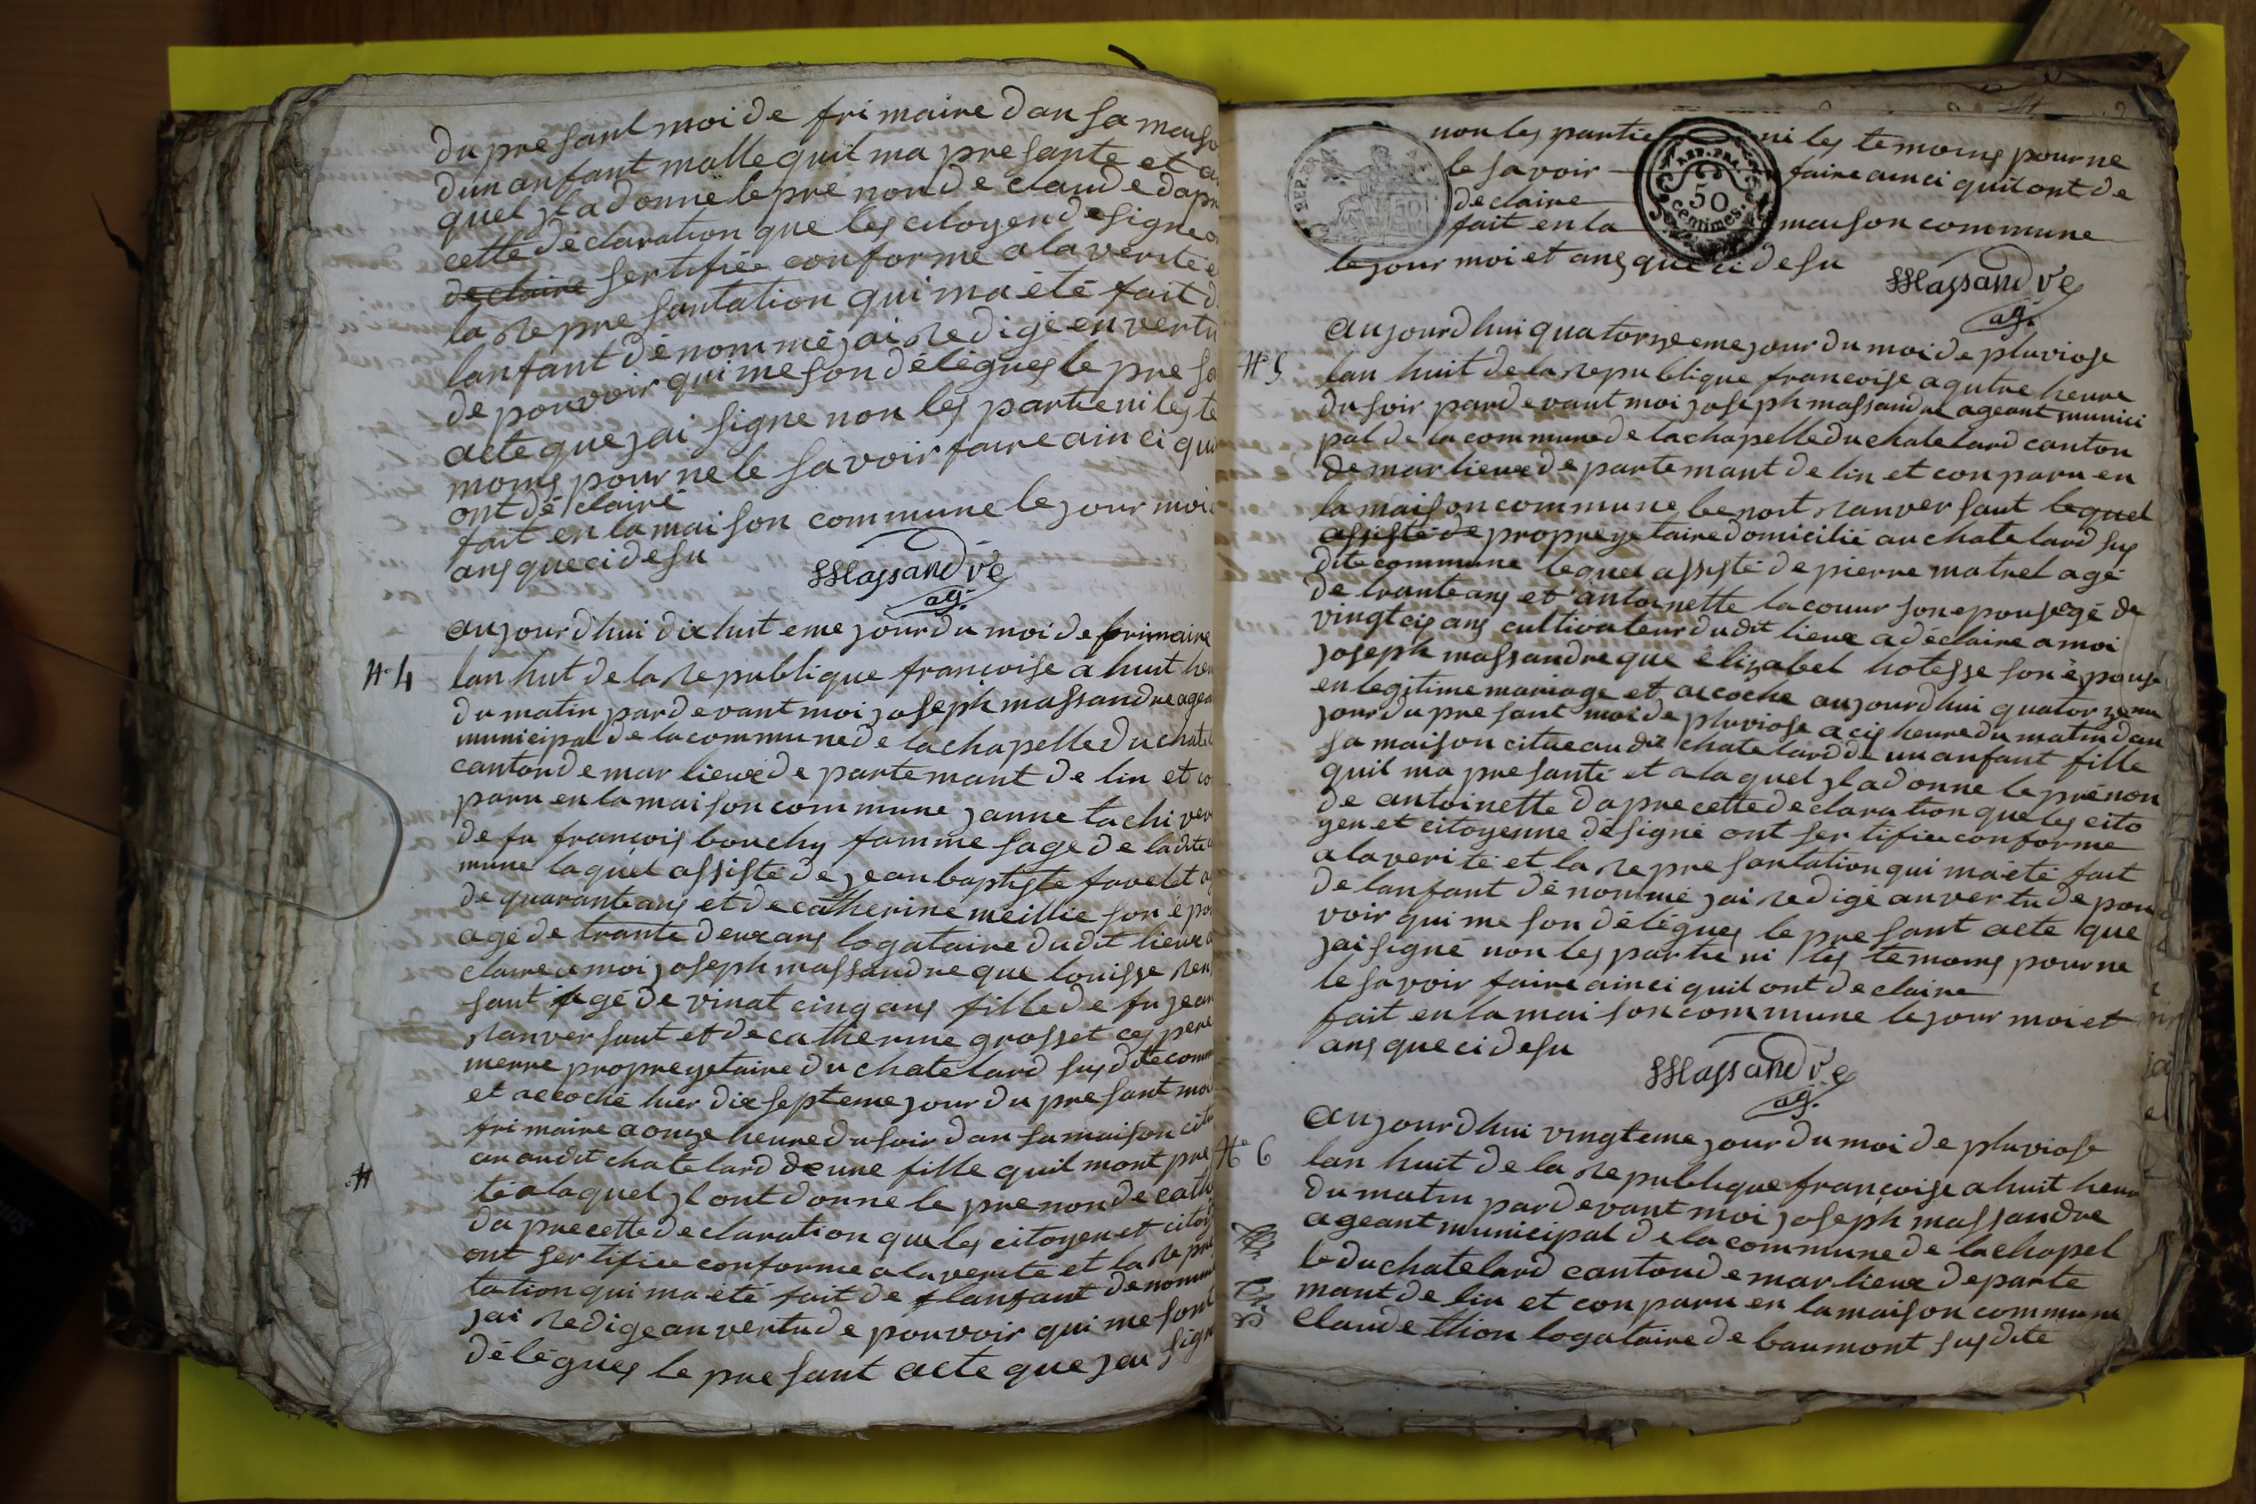 du presant moi de frimaire dan sa maiso
dun anfant malle quil ma presante et a
quel yl a donné le pré non de claude dapr
cette déclaration que les citoyen designe o
declaire sertifiée conforme a la verité e
la représantation qui ma été fait d
lanfant dénommé jai redigé en vertu
de pouvoir qui me son délégues le presa
acte que jai signe non les partie ni les te
moins pour ne le savoir faire ainci quil
ont dé clairé
fait en la maison commune le jour moi
ans que ci desu
Massandre
ag.
aujourdhui dix huit eme jour du moi de frimaire
N 4
lan huit de la republique françoise a huit heu
du matin pardevant moi joseph massandre agea
municipal de la commune de la chapelle du chatel
canton de marlieux de partemant de lin et co
paru en la maison commune janne tachi ver
de fu françois bouchy famme sage de ladite
mune laquel assisté de jean baptiste favelet a
de quarante ans et de catherine meillie son épou
agé de trante deux ans logataire dudit lieux a
claire a moi joseph massandre que louisse ren
sant agé de vinat cinq ans fille de fu jean
ranversant et de catherine grosset ces pere
merre propreyetaire du chatelard susddte comm
et accoché hier dix septeme jour du presant moi
frimaire a onze heure du soir dan sa maison citu
an audit chatelard de une fille quil mont pre
té a laquel yl ont donné le pre non de cath
dapre cette declaration que les citoyen et citoy
ont sertifiée conforme a la verité et la repre
tation qui ma été fait de lanfant denommé
jai redige an vertu de pouvoir qui me sont
délégues le presant acte que jai signe
non les partie ni les temoins pour ne
REP. FRA. 50 centimes.
le savoir faire ainci quil ont de
declaire
fait en la maison commune
le jour moi et ans que ci desu
Massandre
ag.
aujourdhui quatorzeeme jour du moi de pluviose
N 5
lan huit de la republique françoise a qutre heure
du soir pardevant moi joseph massandre ageant munici
pal de la commune de la chapelle du chatelard canton
de marlieux departemant de lin et conparu en
la maison commune benoit ranversant lequel
assisté de propreyetaire domicilié au chatelard sus
dite commune lequel assisté de pierre matrel agé
de trante ans et antoinette lacour son epouse agé de
vingt cis ans cultivateur dudit lieux a declaire a moi
joseph massandre que élizabel hotesse son épouse
en legitime mariage et accoché aujourdhui quatorzeme
jour du presant moi de pluviose a cis heure du matin dan
sa maison citue audit chatelard de un anfant fille
quil ma presanté et a laquel yl a donne le prénon
de antoinette dapre cette declaration que les cito
yen et citoyenne désigné ont sertifiée conforme
a la verité et la represantation qui ma été fait
de lanfant dénommé jai redigé an vertu de pou
voir qui me son délégues le presant acte que
jai signé non les partie ni les temoins pour ne
le savoir faire ainci quil ont declaire
fait en la maison commune le jour moi et
ans que ci desu
Massandre
ag.
aujourdhui vingteme jour du moi de pluviose
N 6
lan huit de la republique françoise a huit heure
du matin pardevant moi joseph massandre
ageant municipal de la commune de la chapel
le du chatelard canton de marlieux departe
mant de lin et conparu en la maison commune
claude thion logataire de baumont susdite